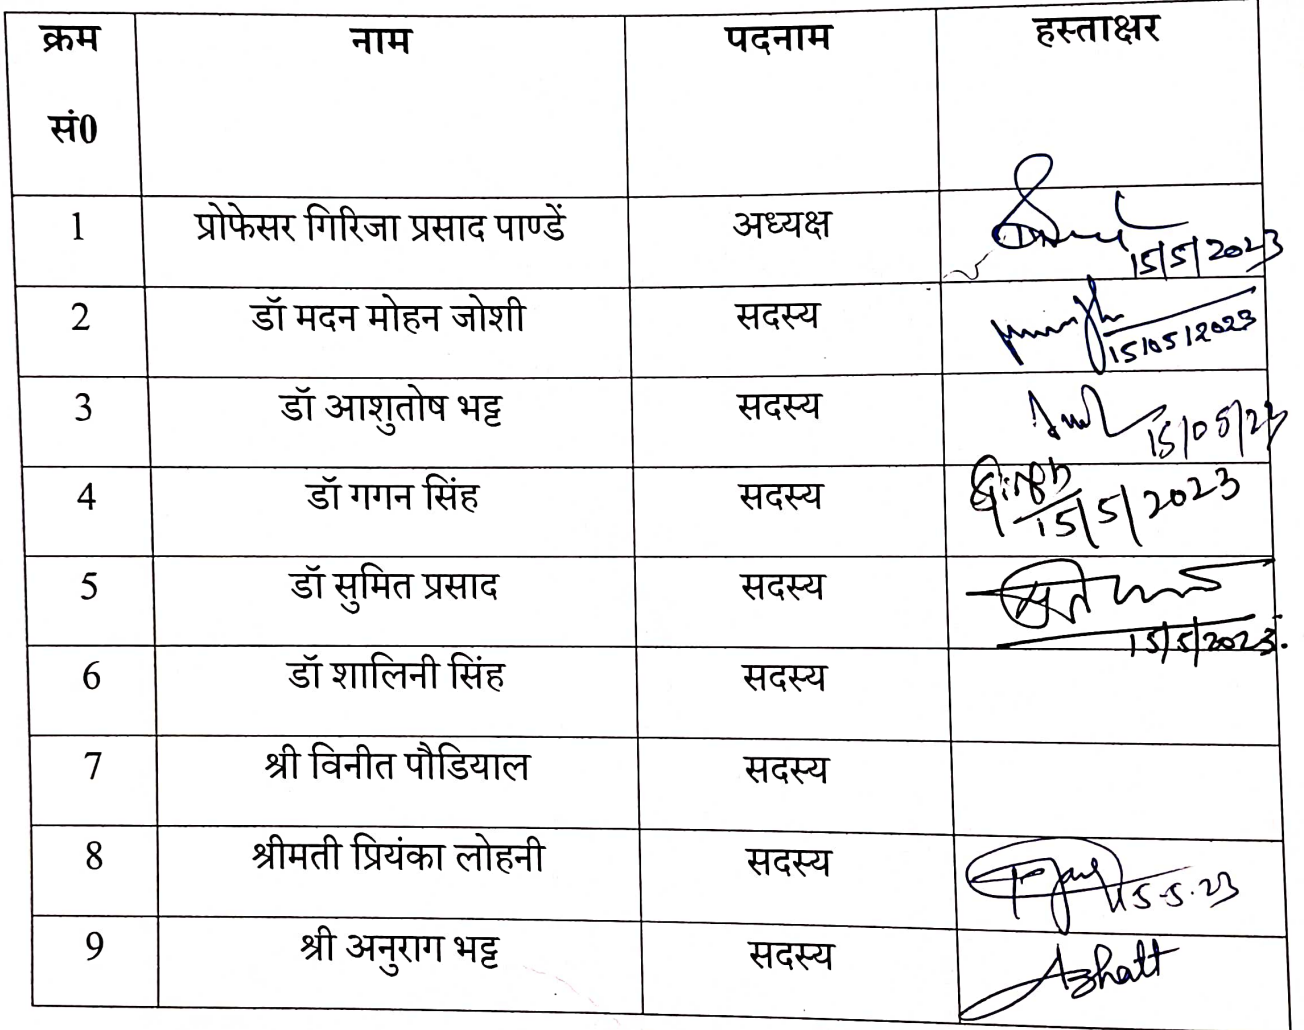 क्रम नाम पदनाम हस्ताक्षर
सं0
1 प्रोफेसर गिरिजा प्रसाद पाण्डें अध्यक्ष 15/5/2023
2 डॉ मदन मोहन जोशी सदस्य 15/05/2023
3 डॉ आशुतोष भट्ट सदस्य 15/05/23
4 डॉ गगन सिंह सदस्य Singh 15/5/2023
5 डॉ सुमित प्रसाद सदस्य 15/5/2023.
6 डॉ शालिनी सिंह सदस्य
7 श्री विनीत पौडियाल सदस्य
8 श्रीमती प्रियंका लोहनी सदस्य 15-5-23
9 श्री अनुराग भट्ट सदस्य Abhatt